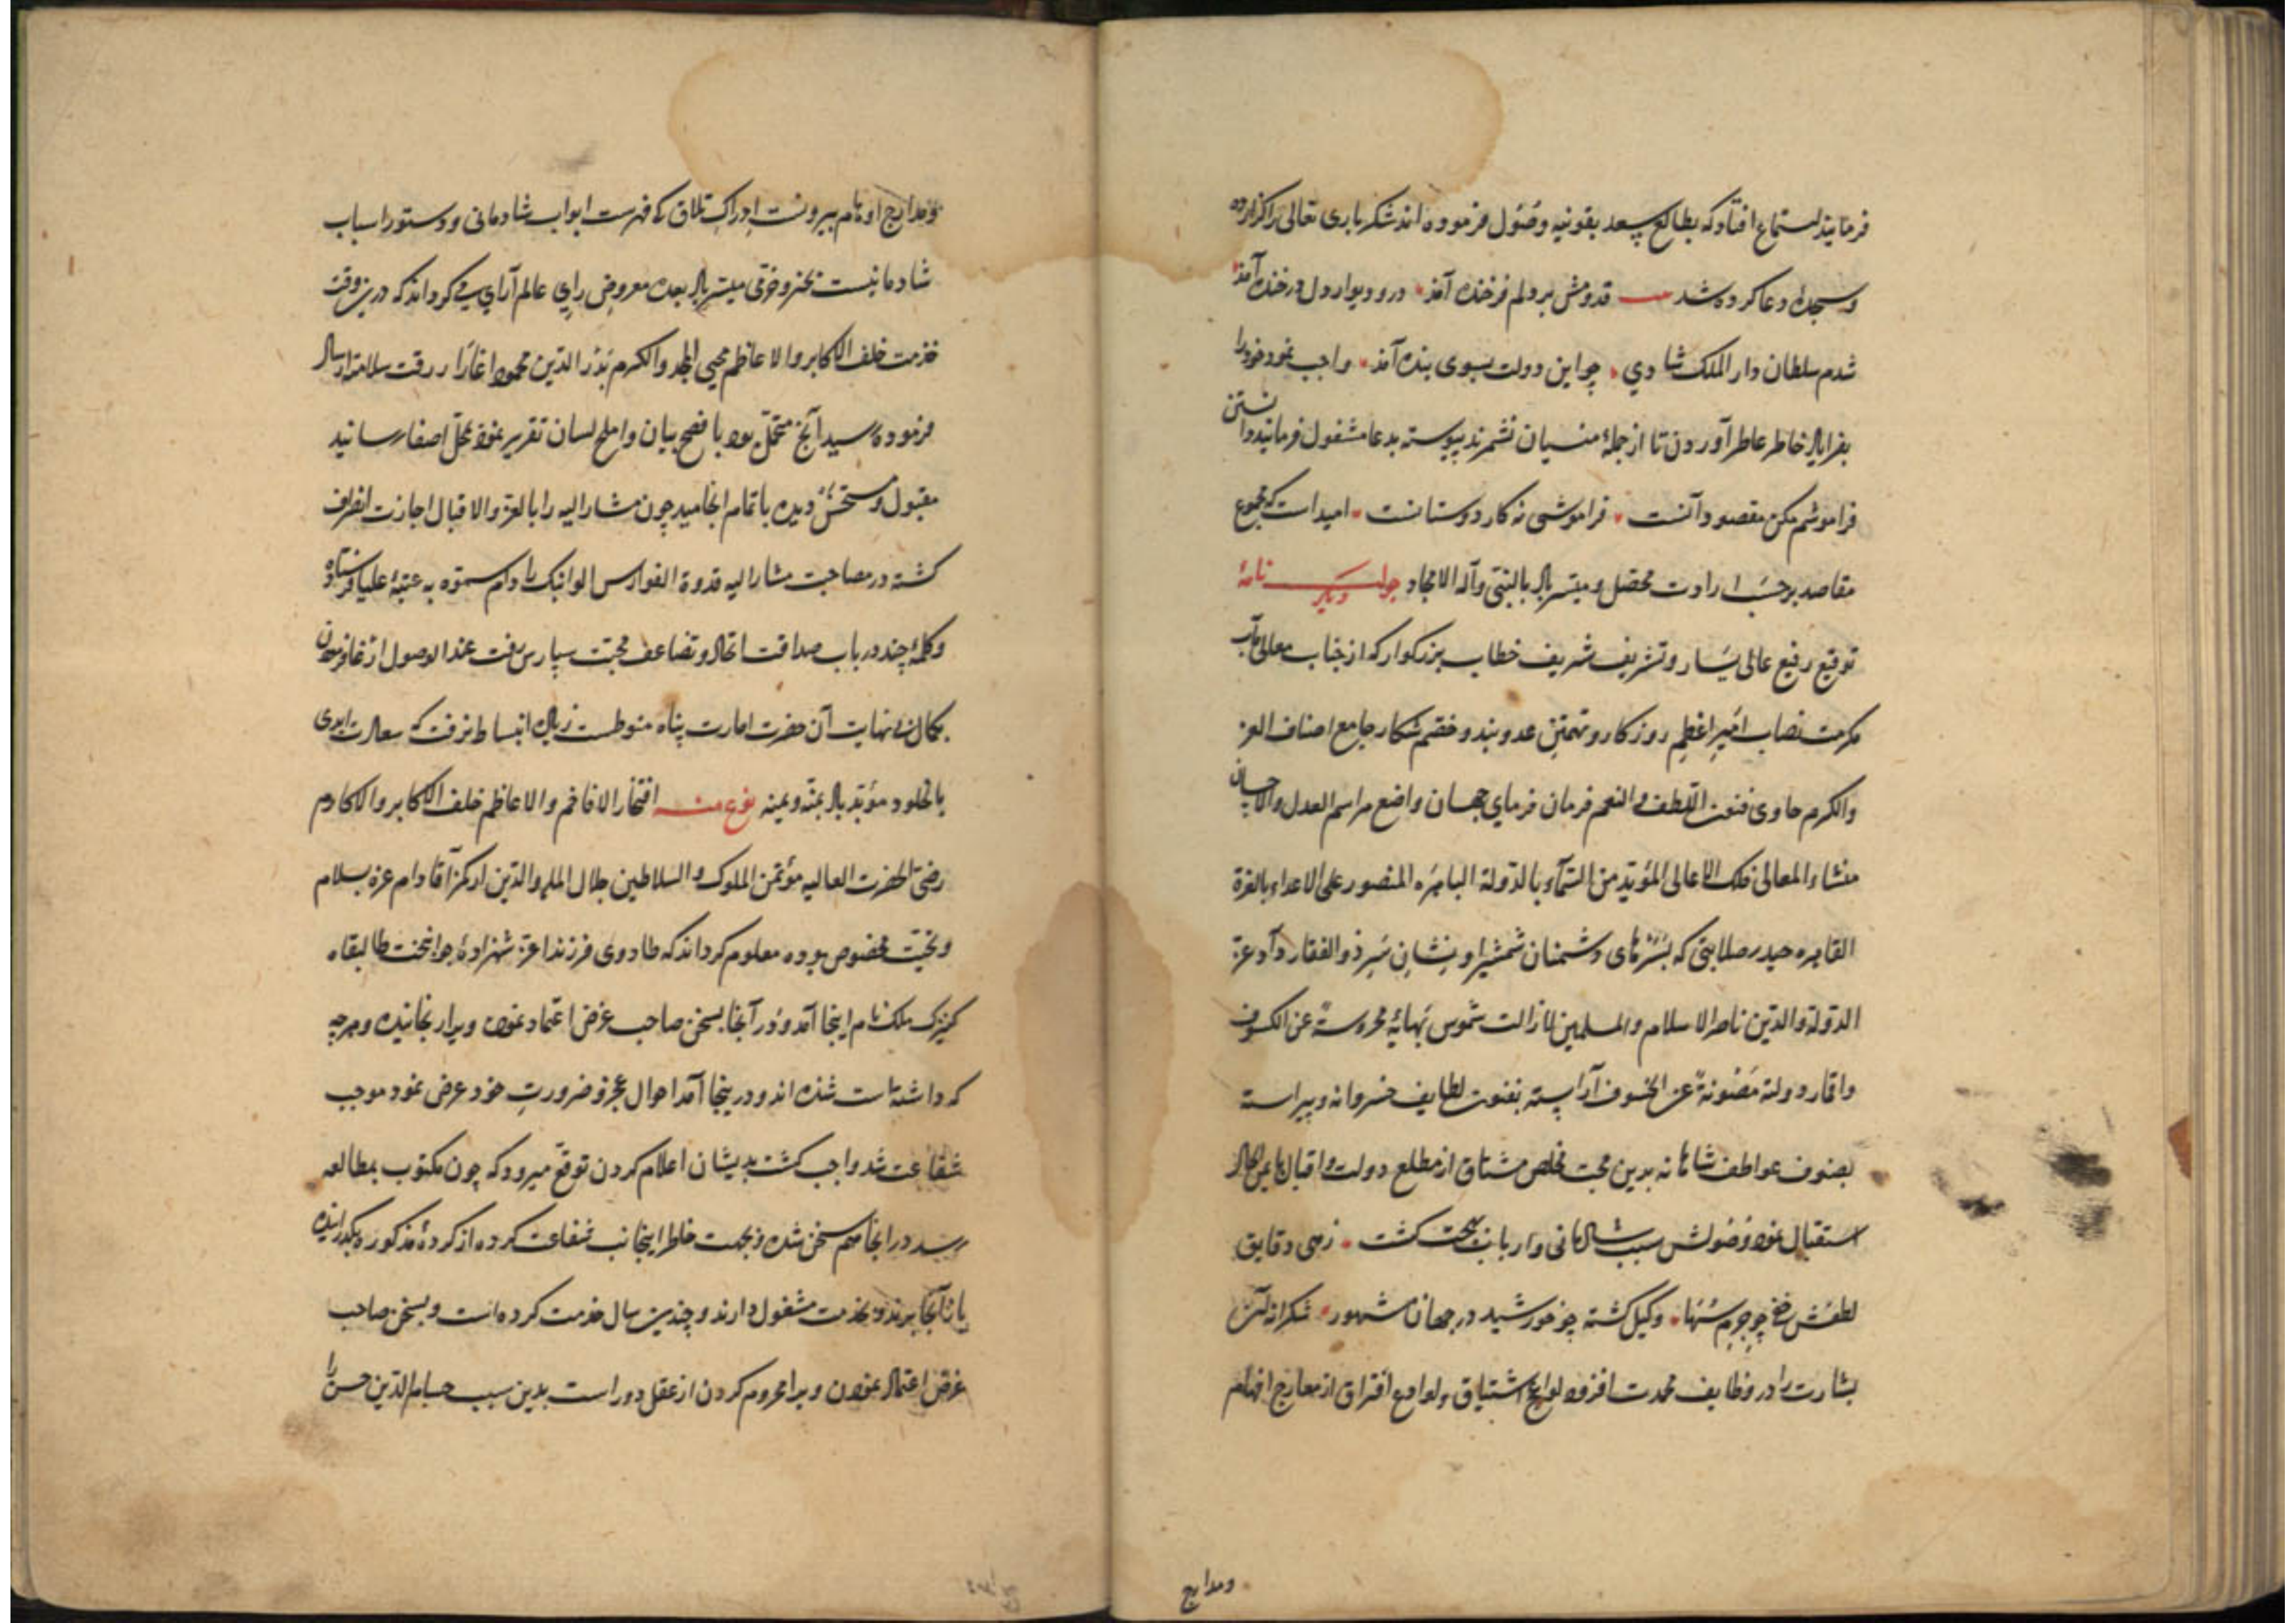 فرمایند استماع افتاد که بطالع سعد بقونیه وصول فرموده اند شکر باری تعالی را گزارده
و سجدهٔ دعا کرده شد قدومش بر دلم فرخنده آمذ در و دیوار دل در خنده آمذ
شدم سلطان دار الملک شادی چو این دولت بسوی بنده آمذ واجب نمود خود را
خاطر عاطر آوردن تا از جملهٔ منسیان نشمرند پیوسته بدعا مشغول فرمایند دانستن
فراموشم مکن مقصود آنست فراموشی نه کار دوستانست امید است که مجموع
مقاصد بر حسب ارادت محصل و میسر باد بالنبی وآله الامجاد جواب نامهٔ دیگر
توقیع رفیع عالی یسار و تشریف شریف خطاب بزرکوار که از جناب معالی مآب
مکرمت نصاب امیر اعظم روزکار و تهمتن عدو بند و خصم شکار جامع اصناف العز
والکرم حاوی فنون اللطف والنعم فرمان فرمای جهان واضع مراسم العدل والاحسان
منشاء المعالی فلک الاعالی المؤید من السمآء بالدولة الباهره المنصور علی الاعداء بالقوة
القاهره حیدر صلابتی که بسرهای دشمنان شمشیر او نشان سر ذو الفقار داد عز
الدولة والدین ناصر الاسلام والمسلمین لا زالت شموس بهائه محروسة عن الکسوف
واقمار دولته مصونة عن الخسوف آراسته بفنون لطایف خسروانه و پیراسته
بصنوف عواطف شاهانه بدین محب مخلص مشتاق از مطلع دولت و اقبال
استقبال نموده وصولش سبب شادمانی و بهجت کشت زهی دقایق
لطفش چو جرم سها وکیل کشته چو خورشید در جهان مشهور شکرانه
بشارت را در وظایف محمدت افزود لواعج اشتیاق و لوامع افتراق از معارج افهام
ومدارج
ومدارج اوهام بیرونست ادراک تلاق که فهرست ابواب شادمانی و دستور اسباب
شادمانیست بخیر و خرّمی میسر باد بعده معروض رای عالم آرای می کرداند که درین وقت
خدمت خلف الاکابر والاعاظم محیی المجد والکرم بدر الدین محمود اغا را رقت سلامته ارسال
فرموده رسید آنچ متحمل بود بافصح بیان واملح لسان تقریر نموده بمحل اصغا رسانید
مقبول و مستحسن دیده باتمام انجامید چون مشار الیه را بالعز والاقبال اجازت انصراف
کشته در مصاحبت مشار الیه قدوة الفوارس الوانبک را دام سموه به عتبهٔ علیا فرستاده
و کلمهٔ چند در باب صداقت اتحاد و تضاعف محبت سپارس رفت عند الوصول
بکمال بی نهایت آن حضرت امارت پناه منوطست زیاده انبساط نرفت که سعادت ابدی
بالخلود مؤبد باد بمنه و یمنه نوع منه افتخار الافاخم والاعاظم خلف الاکابر والاکارم
رضی الحضرت العالیه مؤتمن الملوک والسلاطین جلال المله والدین ارکز آقا دام عزه بسلام
و تحیت مخصوص بوده معلوم کرداند که طادوی فرزند اعز شهزادهٔ جوانبخت طال بقاه
کنیزک ملک نام اینجا آمد و در آنجا بسخن صاحب غرض اعتماد نموده ویرا رنجانیده و هرچه
که داشته است شده اند و درینجا آمد احوال عجز و ضرورت خود عرض نمود موجب
شفاعت شد واجب کشت بدیشان اعلام کردن توقع میرود که چون مکتوب بمطالعه
رسد در آنجا هم سخن شده و بجهت خاطر اینجانب شفاعت کرده از کردهٔ مذکوره بکذرانیده
باز آنجا برند و بخدمت مشغول دارند و چندین سال خدمت کرده است و بسخن صاحب
غرض اعتماد نمودن ویرا محروم کردن از عقل دور است بدین سبب حسام الدین حسن را